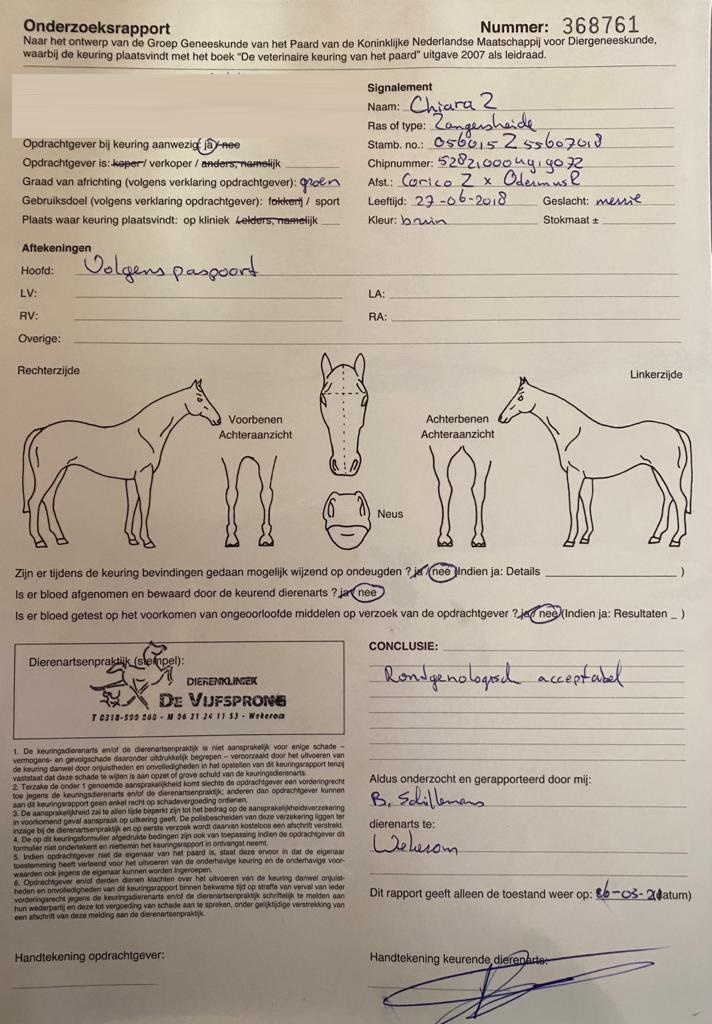 Onderzoeksrapport
Nummer: 368761
Naar het ontwerp van de Groep Geneeskunde van het Paard van de Koninklijke Nederlandse Maatschappij voor Diergeneeskunde,
waarbij de keuring plaatsvindt met het boek "De veterinaire keuring van het paard" uitgave 2007 als leidraad.
Opdrachtgever bij keuring aanwezig: ja/nee
Opdrachtgever is: koper/ verkoper / anders, namelijk
Graad van africhting (volgens verklaring opdrachtgever): groen
Gebruiksdoel (volgens verklaring opdrachtgever): fokkerij / sport
Plaats waar keuring plaatsvindt: op kliniek / elders, namelijk
Signalement
Naam: Chiara Z
Ras of type: Zangersheide
Stamb. no.: 056015 Z 55607018
Chipnummer:
Afst.: Corico Z x
Leeftijd: 27-06-2018 Geslacht: merrie
Kleur: bruin Stokmaat ±
Aftekeningen
Hoofd: Volgens paspoort
LV: LA:
RV: RA:
Overige:
Rechterzijde
Linkerzijde
Voorbenen
Achteraanzicht
Achterbenen
Achteraanzicht
Neus
Zijn er tijdens de keuring bevindingen gedaan mogelijk wijzend op ondeugden ? ja/ nee (Indien ja: Details )
Is er bloed afgenomen en bewaard door de keurend dierenarts ? ja/ nee
Is er bloed getest op het voorkomen van ongeoorloofde middelen op verzoek van de opdrachtgever ? ja/ nee (Indien ja: Resultaten _ )
Dierenartsenpraktijk (stempel):
DIERENKLINIEK
DE VIJFSPRONG
T 0318-590 868 - M 06 21 24 11 53 - Wekerom
1. De keuringsdierenarts en/of de dierenartsenpraktijk is niet aansprakelijk voor enige schade –
vermogens- en gevolgschade daaronder uitdrukkelijk begrepen – veroorzaakt door het uitvoeren van
de keuring danwel door onjuistheden en onvolledigheden in het opstellen van dit keuringsrapport tenzij
vaststaat dat deze schade te wijten is aan opzet of grove schuld van de keuringsdierenarts.
2. Terzake de onder 1 genoemde aansprakelijkheid komt slechts de opdrachtgever een vorderingrecht
toe jegens de keuringsdierenarts en/of de dierenartsenpraktijk; anderen dan opdrachtgever kunnen
aan dit keuringsrapport geen enkel recht op schadevergoeding ontlenen.
3. De aansprakelijkheid zal te allen tijde beperkt zijn tot het bedrag op de aansprakelijkheidsverzekering
in voorkomend geval aanspraak op uitkering geeft. De polisbescheiden van deze verzekering liggen ter
inzage bij de dierenartsenpraktijk en op eerste verzoek wordt daarvan kosteloos een afschrift verstrekt.
4. De op dit keuringsformulier afgedrukte bedingen zijn ook van toepassing indien de opdrachtgever dit
formulier niet ondertekent en niettemin het keuringsrapport in ontvangst neemt.
5. Indien opdrachtgever niet de eigenaar van het paard is, staat deze ervoor in dat de eigenaar
toestemming heeft verleend voor het uitvoeren van de onderhavige keuring en de onderhavige voor-
waarden ook jegens de eigenaar kunnen worden ingeroepen.
6. Opdrachtgever en/of derden dienen klachten over het uitvoeren van de keuring danwel onjuist-
heden en onvolledigheden van dit keuringsrapport binnen bekwame tijd op straffe van verval van ieder
vorderingsrecht jegens de keuringsdierenarts en/of de dierenartsenpraktijk schriftelijk te melden aan
hun wederpartij en deze tot vergoeding van schade aan te spreken, onder gelijktijdige verstrekking van
een afschrift van deze melding aan de dierenarts.
CONCLUSIE:
Rontgenologisch acceptabel
Aldus onderzocht en gerapporteerd door mij:
B. Schillemans
dierenarts te:
Wekerom
Dit rapport geeft alleen de toestand weer op: 26-03-21 (datum)
Handtekening opdrachtgever:
Handtekening keurende dierenarts: